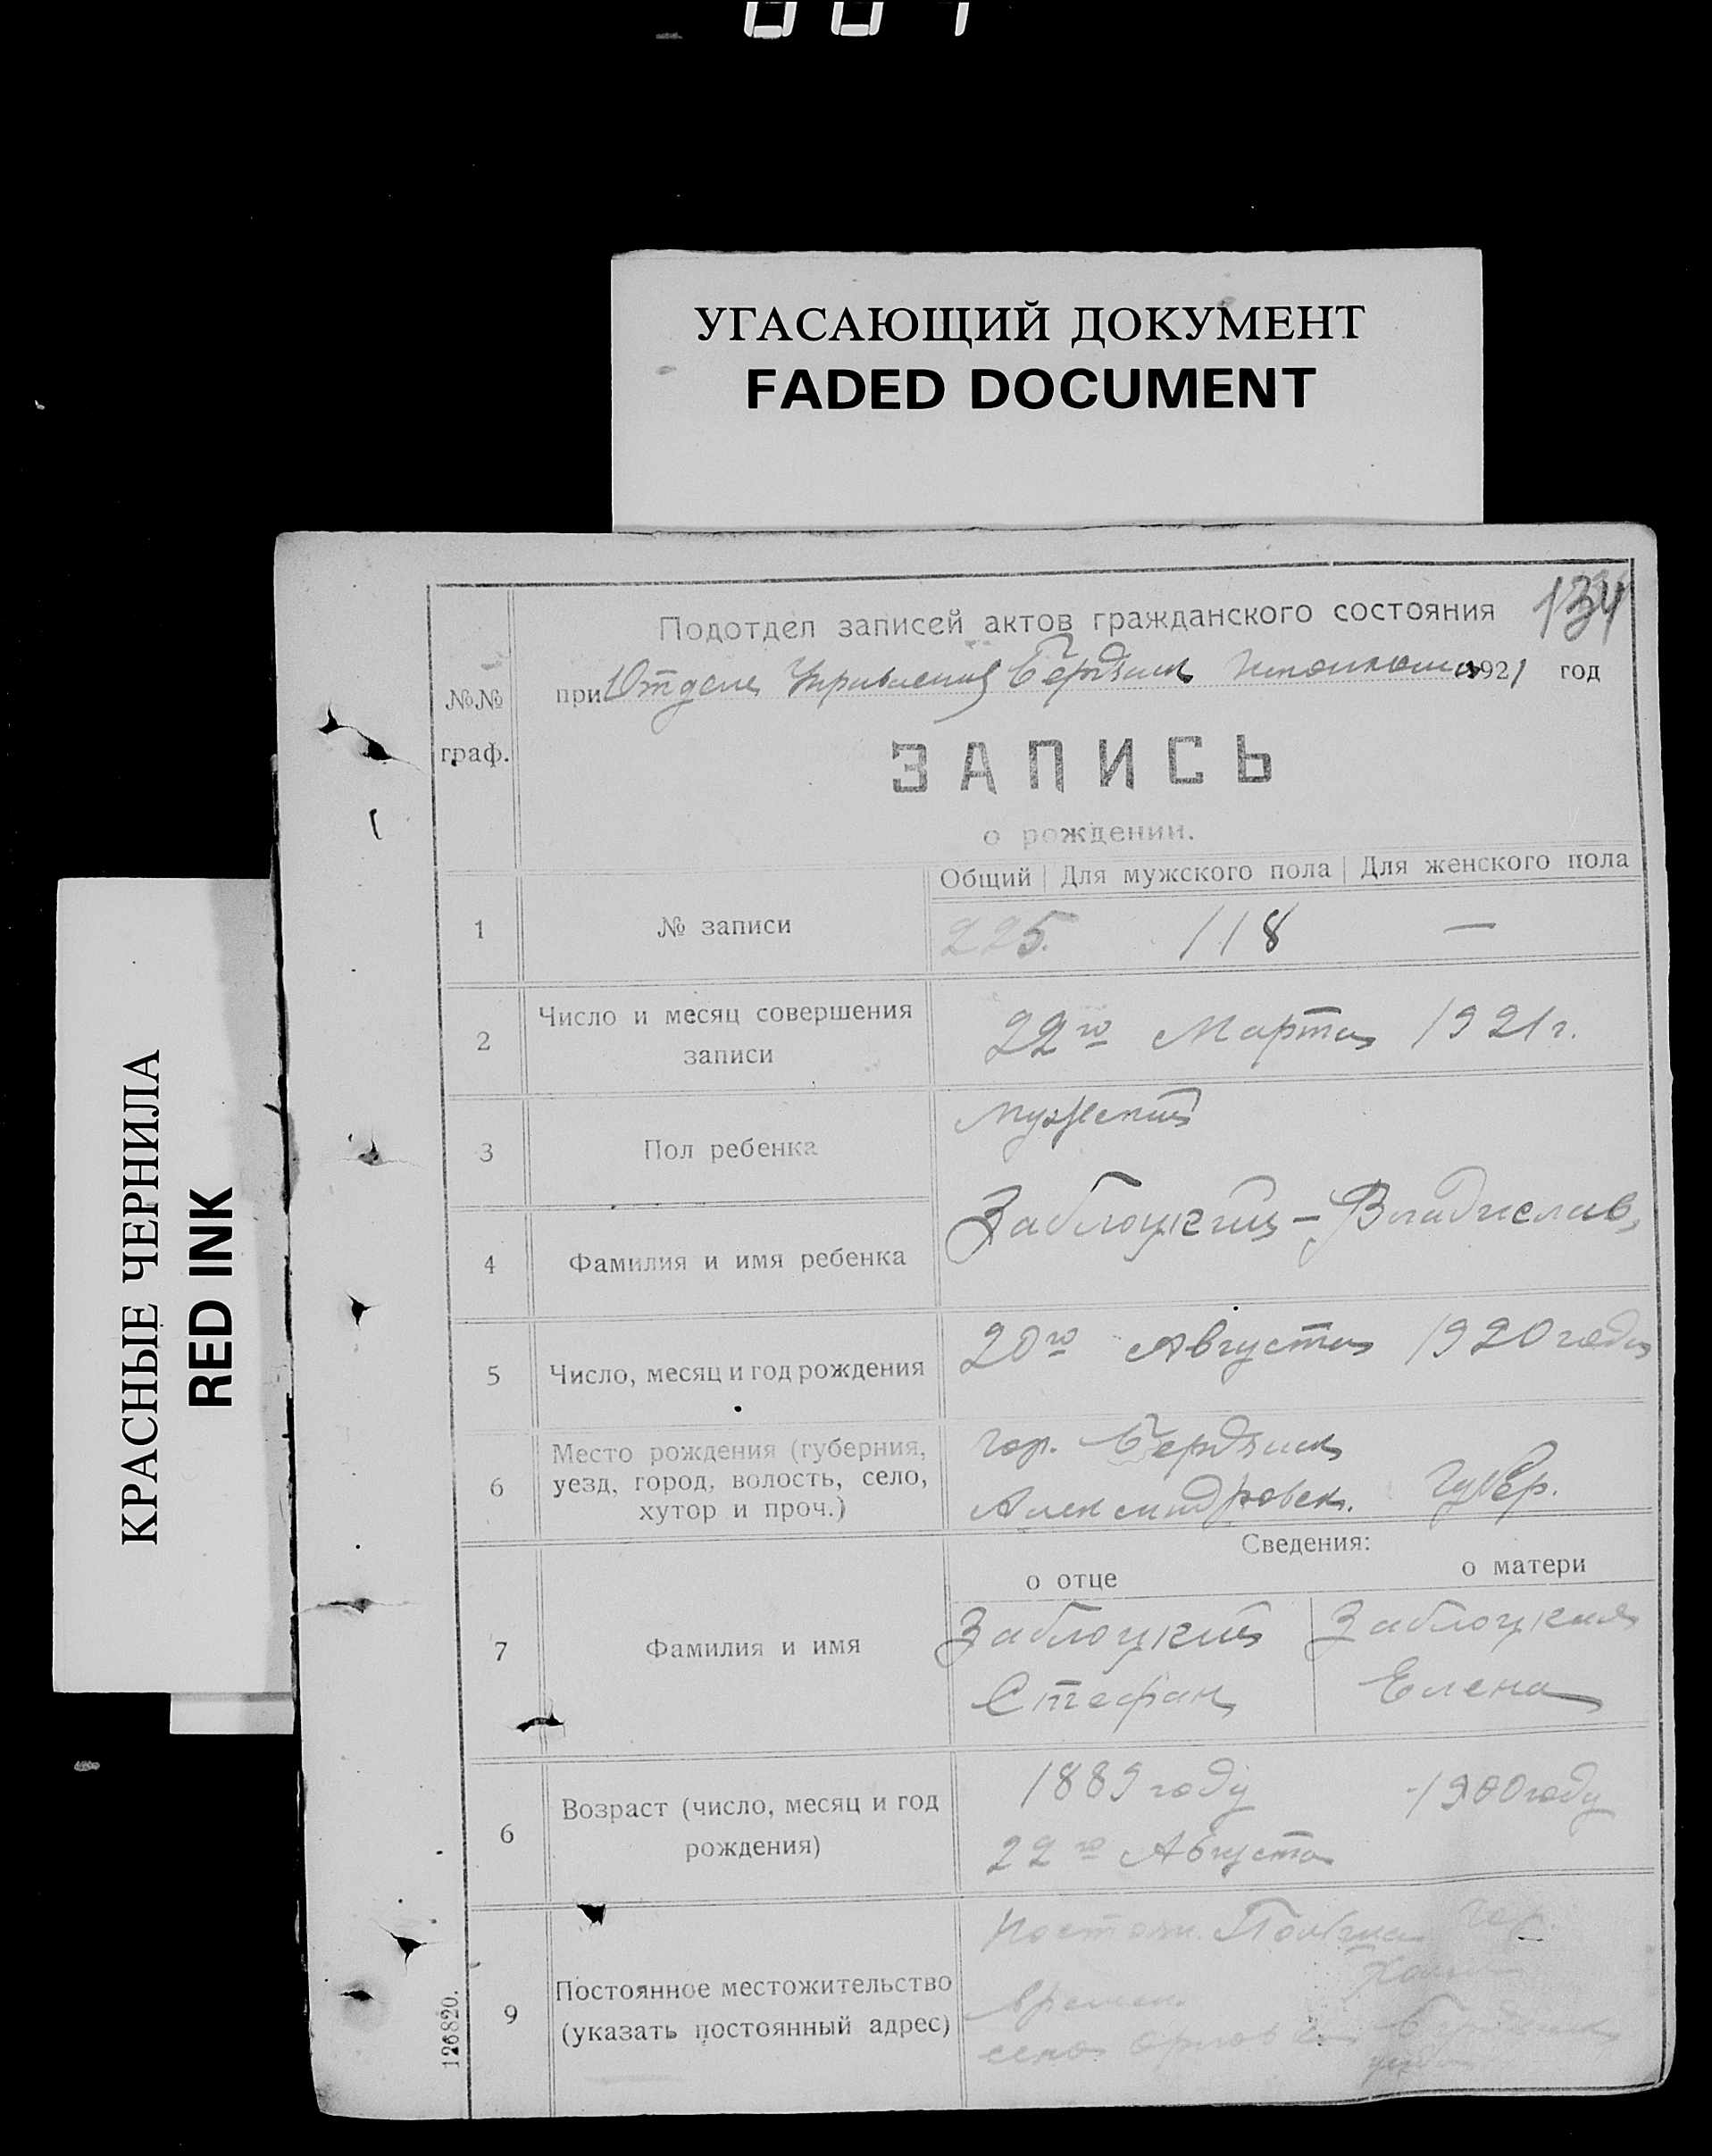 УГАСАЮЩИЙ ДОКУМЕНТ
FADED DOCUMENT
КРАСНЫЕ ЧЕРНИЛА
RED INK
134
Подотдел записей актов гражданского состояния
при Отделе Управления Бердянск 1921 год
№№
граф.
ЗАПИСЬ
о рождении.
Общий Для мужского пола Для женского пола
1 № записи 225. 118 —
2 Число и месяц совершения
записи
22го Марта 1921 г.
3 Пол ребенка Мужской
4 Фамилия и имя ребенка Заблоцкий - Владислав
5 Число, месяц и год рождения 20го Августа 1920 года
6 Место рождения (губерния,
уезд, город, волость, село,
хутор и проч.)
гор. Бердянск
Александровск. Губер.
Сведения:
о отце о матери
7 Фамилия и имя
Заблоцкий Заблоцкая
Стефан Елена
6 Возраст (число, месяц и год
рождения)
1889 году 1900 году
22го Августа
9 Постоянное местожительство
(указать постоянный адрес)
Постоян. гор.
времен.
село
126820.